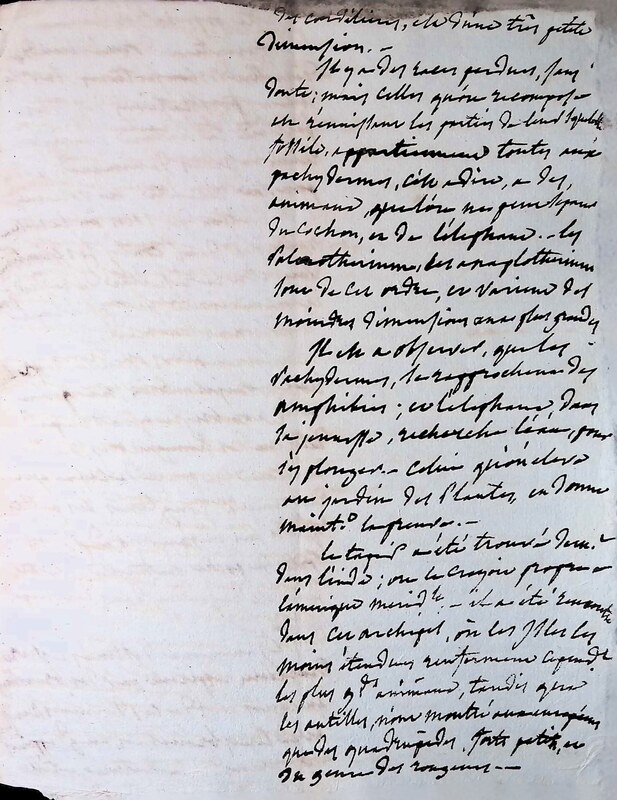 des cordilières, est d'une très petite
dimension. —
Il y a des races perdues, sans
doute; mais celles qu'on recompose
en réunissant les parties de leur squelette
fossile, appartiennent toutes aux
pachydermes, c'est a dire, a des
animaux, que l'on ne peut séparer
du cochon, et de l'éléphant. - les
Palæotherium, les anaplotherium
sont de cet ordre, et varient des
moindres dimensions aux plus grandes
Il est a observer, que les
Pachydermes, se rapprochent des
amphibies; et l'éléphant, dans
sa jeunesse, recherche l'eau, pour
s'y plonger. - Celui qu'on élève
au jardin des Plantes, en donne
maint.t la preuve. —
le tapir a été trouvé dern.t
dans l'inde; on le croyait propre a
l'amérique merid.le - il a été rencontré
dans cet archipel, où les Isles les
moins étendues renferment cepend.t
les plus g.ds animaux, tandis que
les antilles, n'ont montré aux européens
que des quadrupèdes, forts petits, et
du genre des rongeurs —